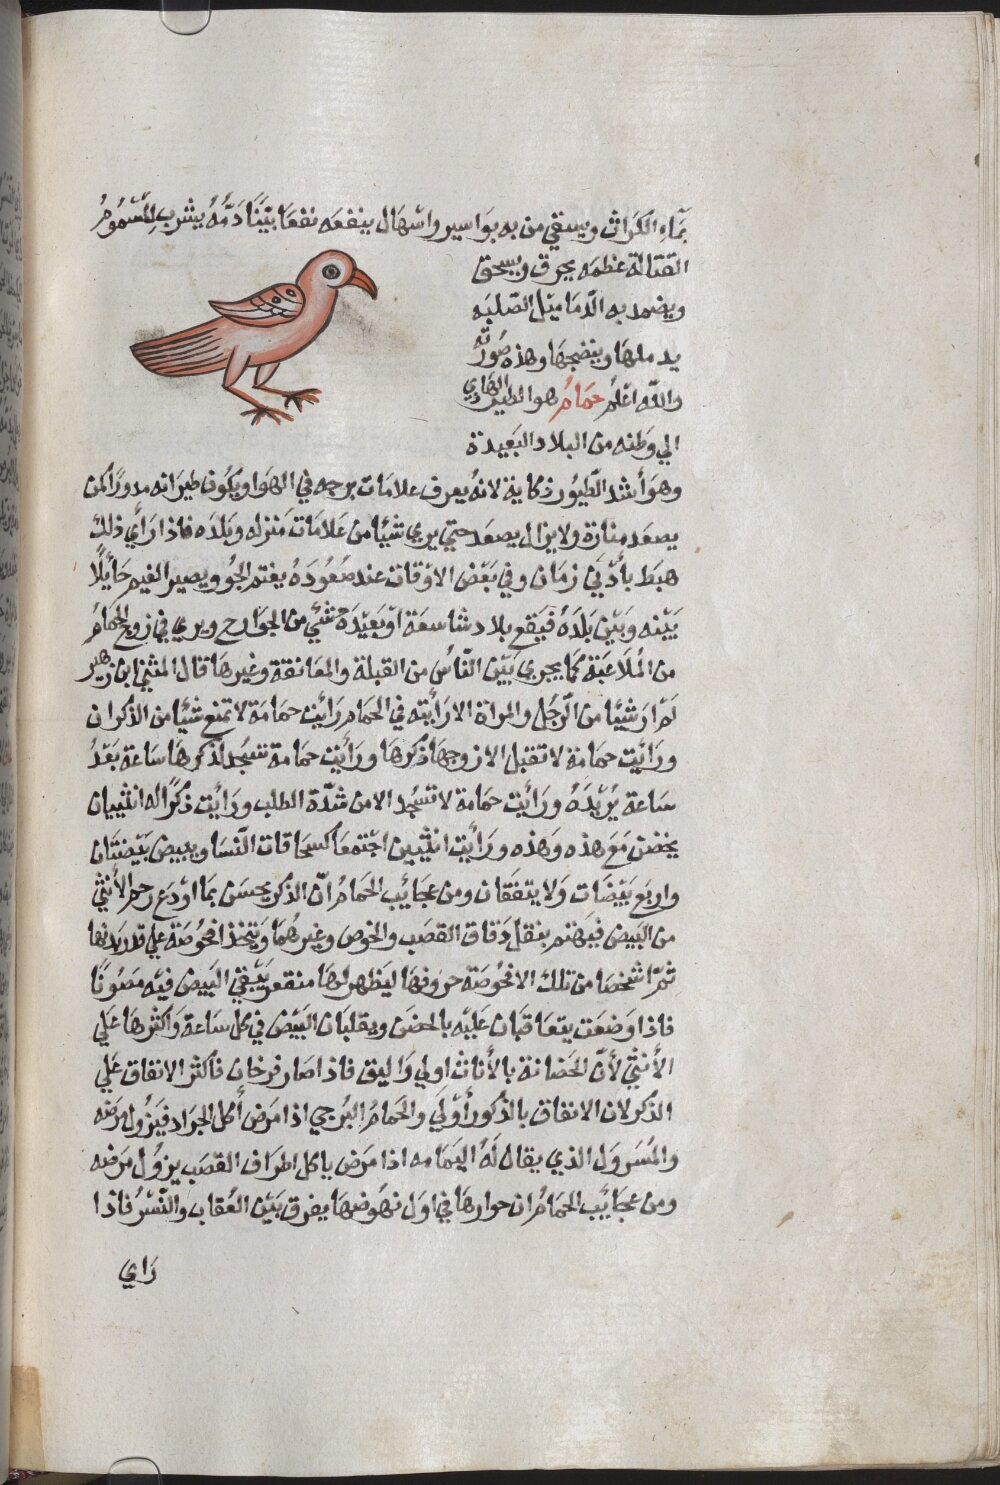 بمَّاءِ الكرَاث ويسقي من به بوَاسير واسْهَال ينفعَه نفعَا بيّنَا دَمُهُ يشرب لِلسْمُوُمُ
القتالة عظمَه يحرق ويسحق
ويضمد به الدّمَاميل الصّلبَه
يدملهَا وينضجهَا وهذه صُورته
والله اعْلم حمَامُ هو الطير الهادي
الي وَطنه من البلاد البَعيدة
وهوَ أشد الطّيُور زكاية لانهُ يعرف علامَات برجه في الهوَا ويكُون طيرَانه مدورًا كمن
يصعَد منارَة ولا يزال يصعَد حتي يري شيًا من عَلامَات مَنزله وبَلدَه فاذا رَأي ذلك
هبَط بأدْني زمَان وفي بَعْض الاوْقات عند صُعُودَهُ يغتم الجُو ويصير الغيم حَايلًا
بَيْنه وبَيْن بَلدَهُ فيَقع ببلاد شاسعَة اوْ بَعيْدَة شئي من الجوَارح ويري في زوج الحمَامُ
من المُلاعَبَة كمَا يجري بَيْن النّاسُ من القبلة والمعَانقة وغيرهَا قال المثني ابن زهير
لمْ ارَ شيًا من الرّجُل والمراة الا رَأيته في الحمَام رَايْت حمَامَة لا تمنع شيًا من الذكران
ورَايْت حمَامَة لا تقبل الا زوجهَا ذكرهَا ورَأيْت حمامة تسجُد لذكرهَا سَاعَة بَعْدُ
سَاعة يُريْدَهُ ورَأيْت حمَامة لا تسْجُد الا من شدّة الطلب ورَأيْت ذكرًا له انثييان
يخضن مَعَ هذه وَهذه ورَأيْت انثيين اجْتمعَا كسحَاقات النّسَا ويبيض بَيْضتَان
واربَع بَيْضَات وَلا يتفَقان ومن عجَايَب الحَمامُ انّ الذكر يحسَن بمَا اوْدَع رحم الأنثي
من البَيض فيَهتم بنقل دَقاق القصَب والخوص وغيرهُمَا وَيتخذ افحُوصَة علي قدر بَدنهَا
ثمّ اشخصَا من تلك الافحُوصَة حرَوفهَا ليَظهر لهَا منقعر يَبْقي البَيض فيْه مَصُونًا
فاذا وَضعَت يتعَاقبَان عَليْه بالحضن ويقلبَان البَيْض في كل سَاعة وَاكثرهَا عَلي
الأنثَي لأنّ الحَضانة بالأناث اولي وَاليق فاذا صَار فرخان فاكثر الانفاق عَلي
الذكر لان الانفاق بالذكور أوْلي والحَمامُ البُرجي اذا مَرض أكل الجرَاد فيَزُول مرَضه
والمُسَروَل الذي يقال لَهُ اليَمَامه اذا مَرَض ياكل اطرَاف القصَب يزوُل مَرَضه
ومن عجَايَب الحَمَامُ ان حوارهَا في اوَل نهُوضهَا يفرق بَيْن العُقاب والنّسْرُ فاذا
رَاي